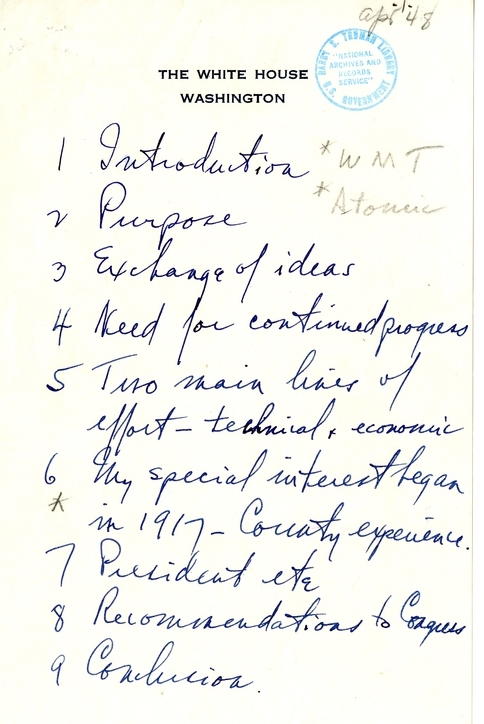 apr '48
THE WHITE HOUSE
WASHINGTON
HARRY S. TRUMAN LIBRARY
"NATIONAL
ARCHIVES AND
RECORDS
SERVICE"
U.S. GOVERNMENT
1 Introduction * W M T
* Atomic
2 Purpose
3 Exchange of ideas
4 Need for continued progress
5 Two main lines of
effort - technical & economic
6 My special interest began
* in 1917 - County experience.
7 President etc
8 Recommendations to Congress
9 Conclusion.